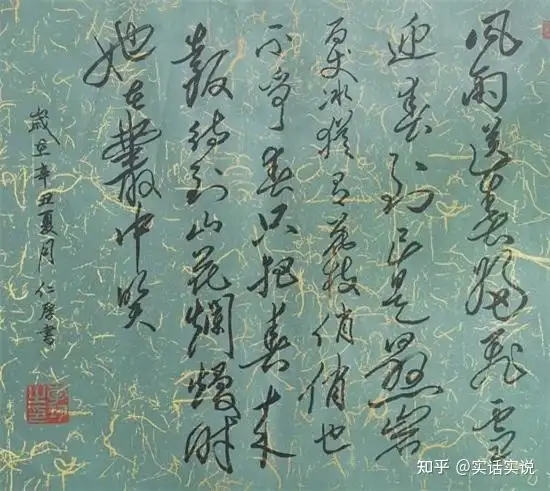 风雨送春归飞雪
迎春到已是悬崖
百丈冰犹有花枝俏俏也
不争春只把春来
报待到山花爛熳时
她在叢中笑
歲在辛丑夏月仁書
知乎 @实话实说